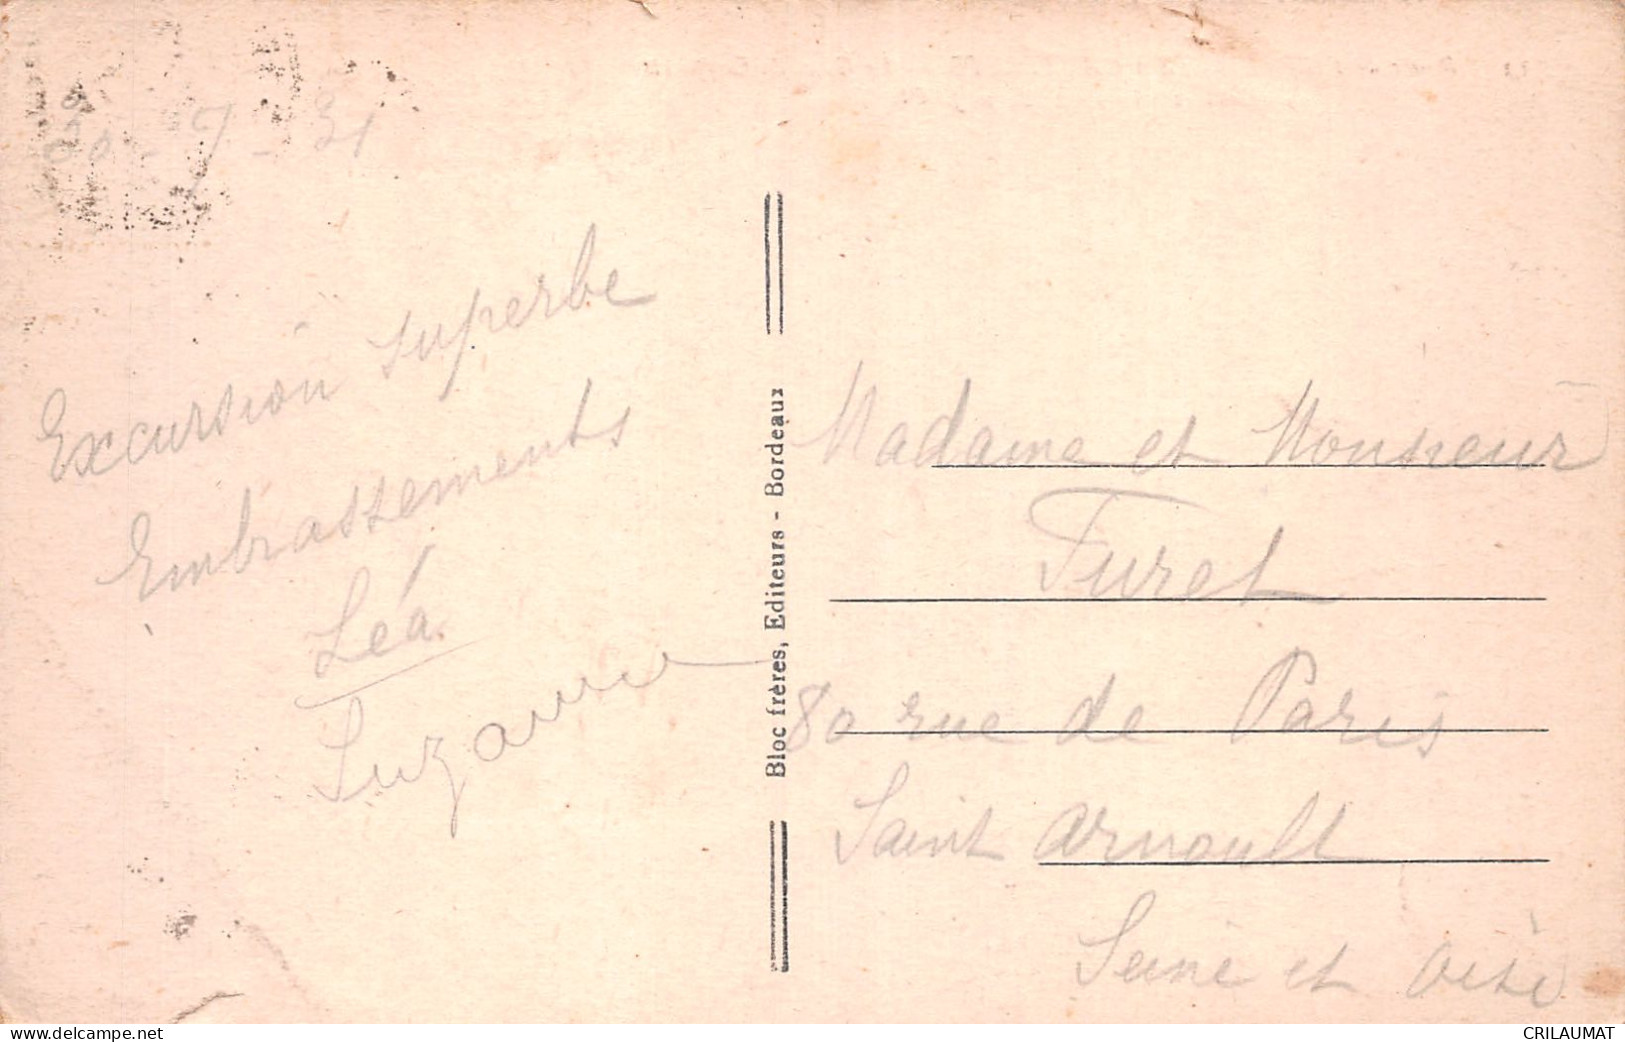 30-7-31
Excursion superbe
Embrassements
Léa
Suzanne
Bloc frères, Editeurs - Bordeaux
Madame et Monsieur
Furet
80 rue de Paris
Saint Arnoult
Seine et Oise
www.delcampe.net
CRILAUMAT